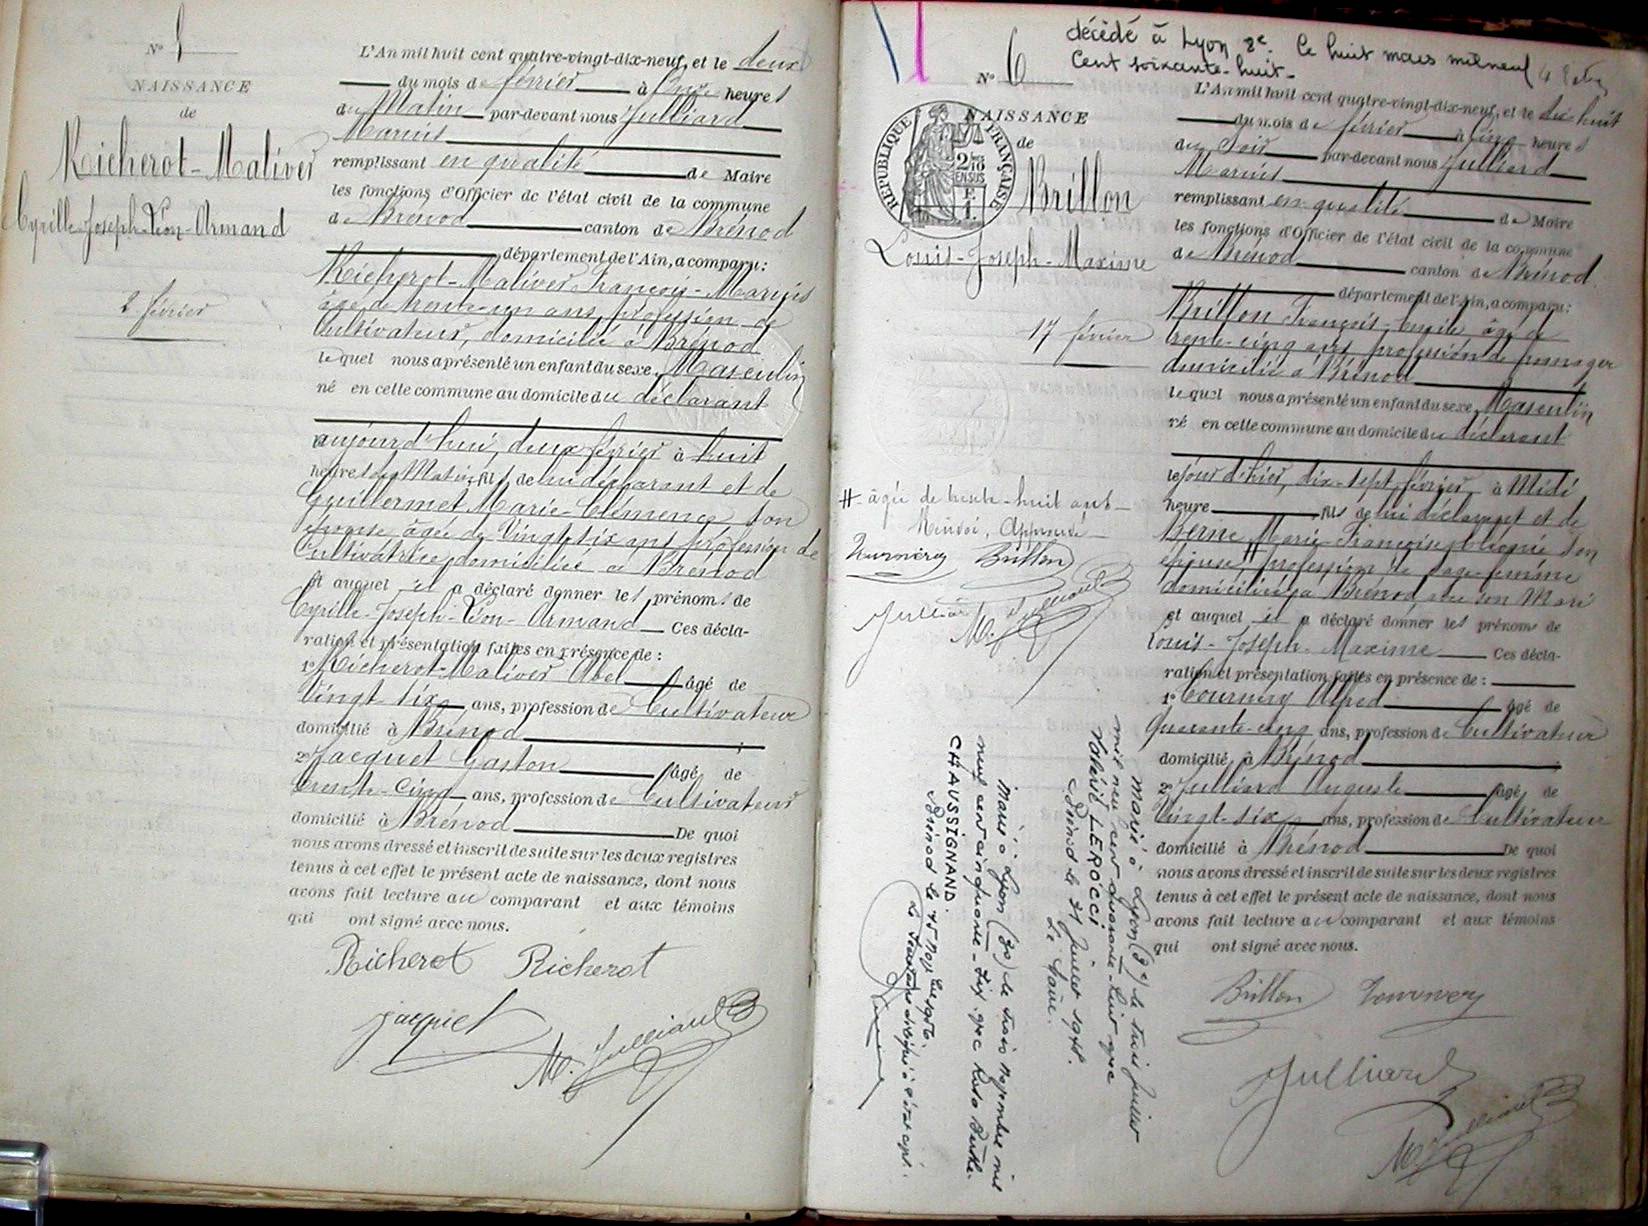 N°
NAISSANCE
de
Richerot-Maliver
Cyrille-Joseph-Léon-Armand
2 février
L'An mil huit cent quatre-vingt-dix-neuf, et le deux
du mois de février à onze heures
du Matin par-devant nous Julliard
Marius
remplissant en qualité de Maire
les fonctions d'Officier de l'état civil de la commune
de Brénod canton de Brénod
département de l'Ain, a comparu:
Richerot-Maliver François-Marius
âgé de trente-un ans, profession de
Cultivateur, domicilié à Brénod
lequel nous a présenté un enfant du sexe Masculin
né en cette commune au domicile du déclarant
aujourd'hui, deux février à huit
heures du Matin, fils de lui déclarant et de
Guillermet Marie-Clémence son
épouse, âgée de Vingt-six ans profession de
Cultivatrice, domiciliée à Brénod
et auquel il a déclaré donner les prénoms de
Cyrille-Joseph-Léon-Armand Ces décla-
ration et présentation faites en présence de :
1° Richerot-Maliver Abel âgé de
Vingt-six ans, profession de Cultivateur
domicilié à Brénod ;
2° Jacquet Gaston âgé de
trente-cinq ans, profession de Cultivateur
domicilié à Brénod De quoi
nous avons dressé et inscrit de suite sur les deux registres
tenus à cet effet le présent acte de naissance, dont nous
avons fait lecture au comparant et aux témoins
qui ont signé avec nous.
Richerot Richerot
Jacquet
M. Julliard
décédé à Lyon 8e. le huit mars mil neuf
Cent soixante-huit-
N° 6
NAISSANCE
de
RÉPUBLIQUE FRANÇAISE
2/10 EN SUS
Brillon
Louis-Joseph-Maxime
17 février
L'An mil huit cent quatre-vingt-dix-neuf, et le dix huit
du mois de février à cinq heures
du Soir par-devant nous Julliard
Marius
remplissant en qualité de Maire
les fonctions d'Officier de l'état civil de la commune
de Brénod canton de Brénod
département de l'Ain, a comparu:
Brillon François âgé de
trente-cinq ans profession de fromager
domicilié à Brénod
lequel nous a présenté un enfant du sexe Masculin
né en cette commune au domicile du déclarant
le jour d'hier, dix-sept février à Midi
heure fils de lui déclarant et de
Berne Marie-Françoise son
épouse # profession de sage-femme
domiciliée à Brénod, avec son Mari
et auquel il a déclaré donner les prénoms de
Louis-Joseph-Maxime Ces décla-
ration et présentation faites en présence de :
1° Tournery Alfred âgé de
Quarante-cinq ans, profession de Cultivateur
domicilié à Brénod
2° Julliard Auguste âgé de
Vingt-six ans, profession de Cultivateur
domicilié à Brénod De quoi
nous avons dressé et inscrit de suite sur les deux registres
tenus à cet effet le présent acte de naissance, dont nous
avons fait lecture au comparant et aux témoins
qui ont signé avec nous.
Brillon Tournery
Julliard
M. Julliard
# âgée de trente-huit ans
Renvoi, Approuvé
Tournery Brillon
Julliard M. Julliard
Marié à Lyon (3e) le huit juillet
mil neuf cent quarante-huit avec
LEROCCI
Brénod le 21 juillet 1948.
Le Maire.
Marié à Lyon (3e) le trois novembre mil
neuf cent cinquante-six avec
CHAUSSIGNAND.
Brénod le 15 Nov. 1956.
Le Secrétaire délégué à l'état civil.